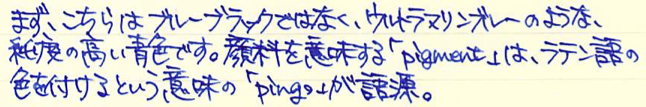 まず、こちらはブルーブラックではなく、ウルトラマリンブルーのような、
純度の高い青色です。顔料を意味する「pigment」は、ラテン語の
色を付けるという意味の「pingo」が語源。